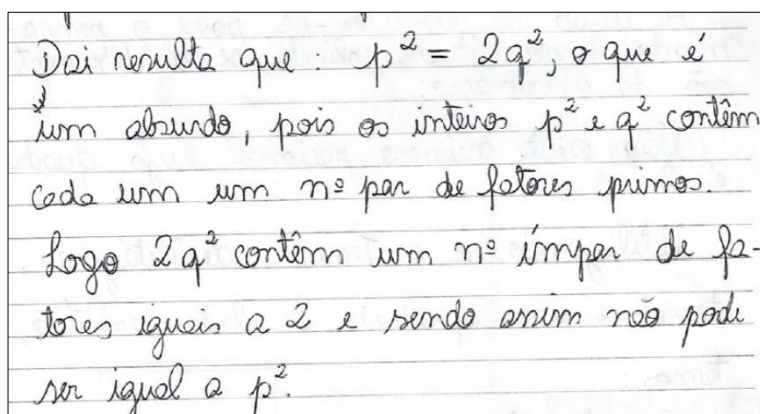 Daí resulta que: p² = 2q², o que é
um absurdo, pois os inteiros p² e q² contêm
cada um um nº par de fatores primos.
Logo 2q² contêm um nº ímpar de fa-
tores iguais a 2 e sendo assim não pode
ser igual a p².